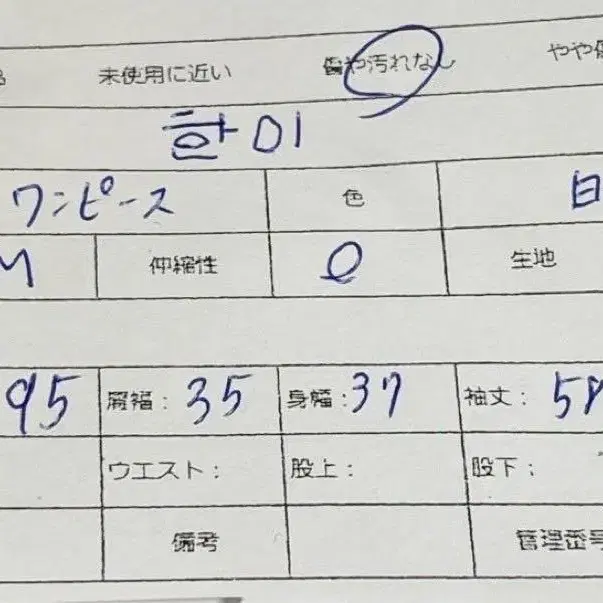 未使用に近い 傷や汚れなし やや傷
한미
ワンピース 色 白
M 伸縮性 生地
95 肩幅: 35 身幅: 37 袖丈: 58
ウエスト: 股上: 股下:
備考 管理番号